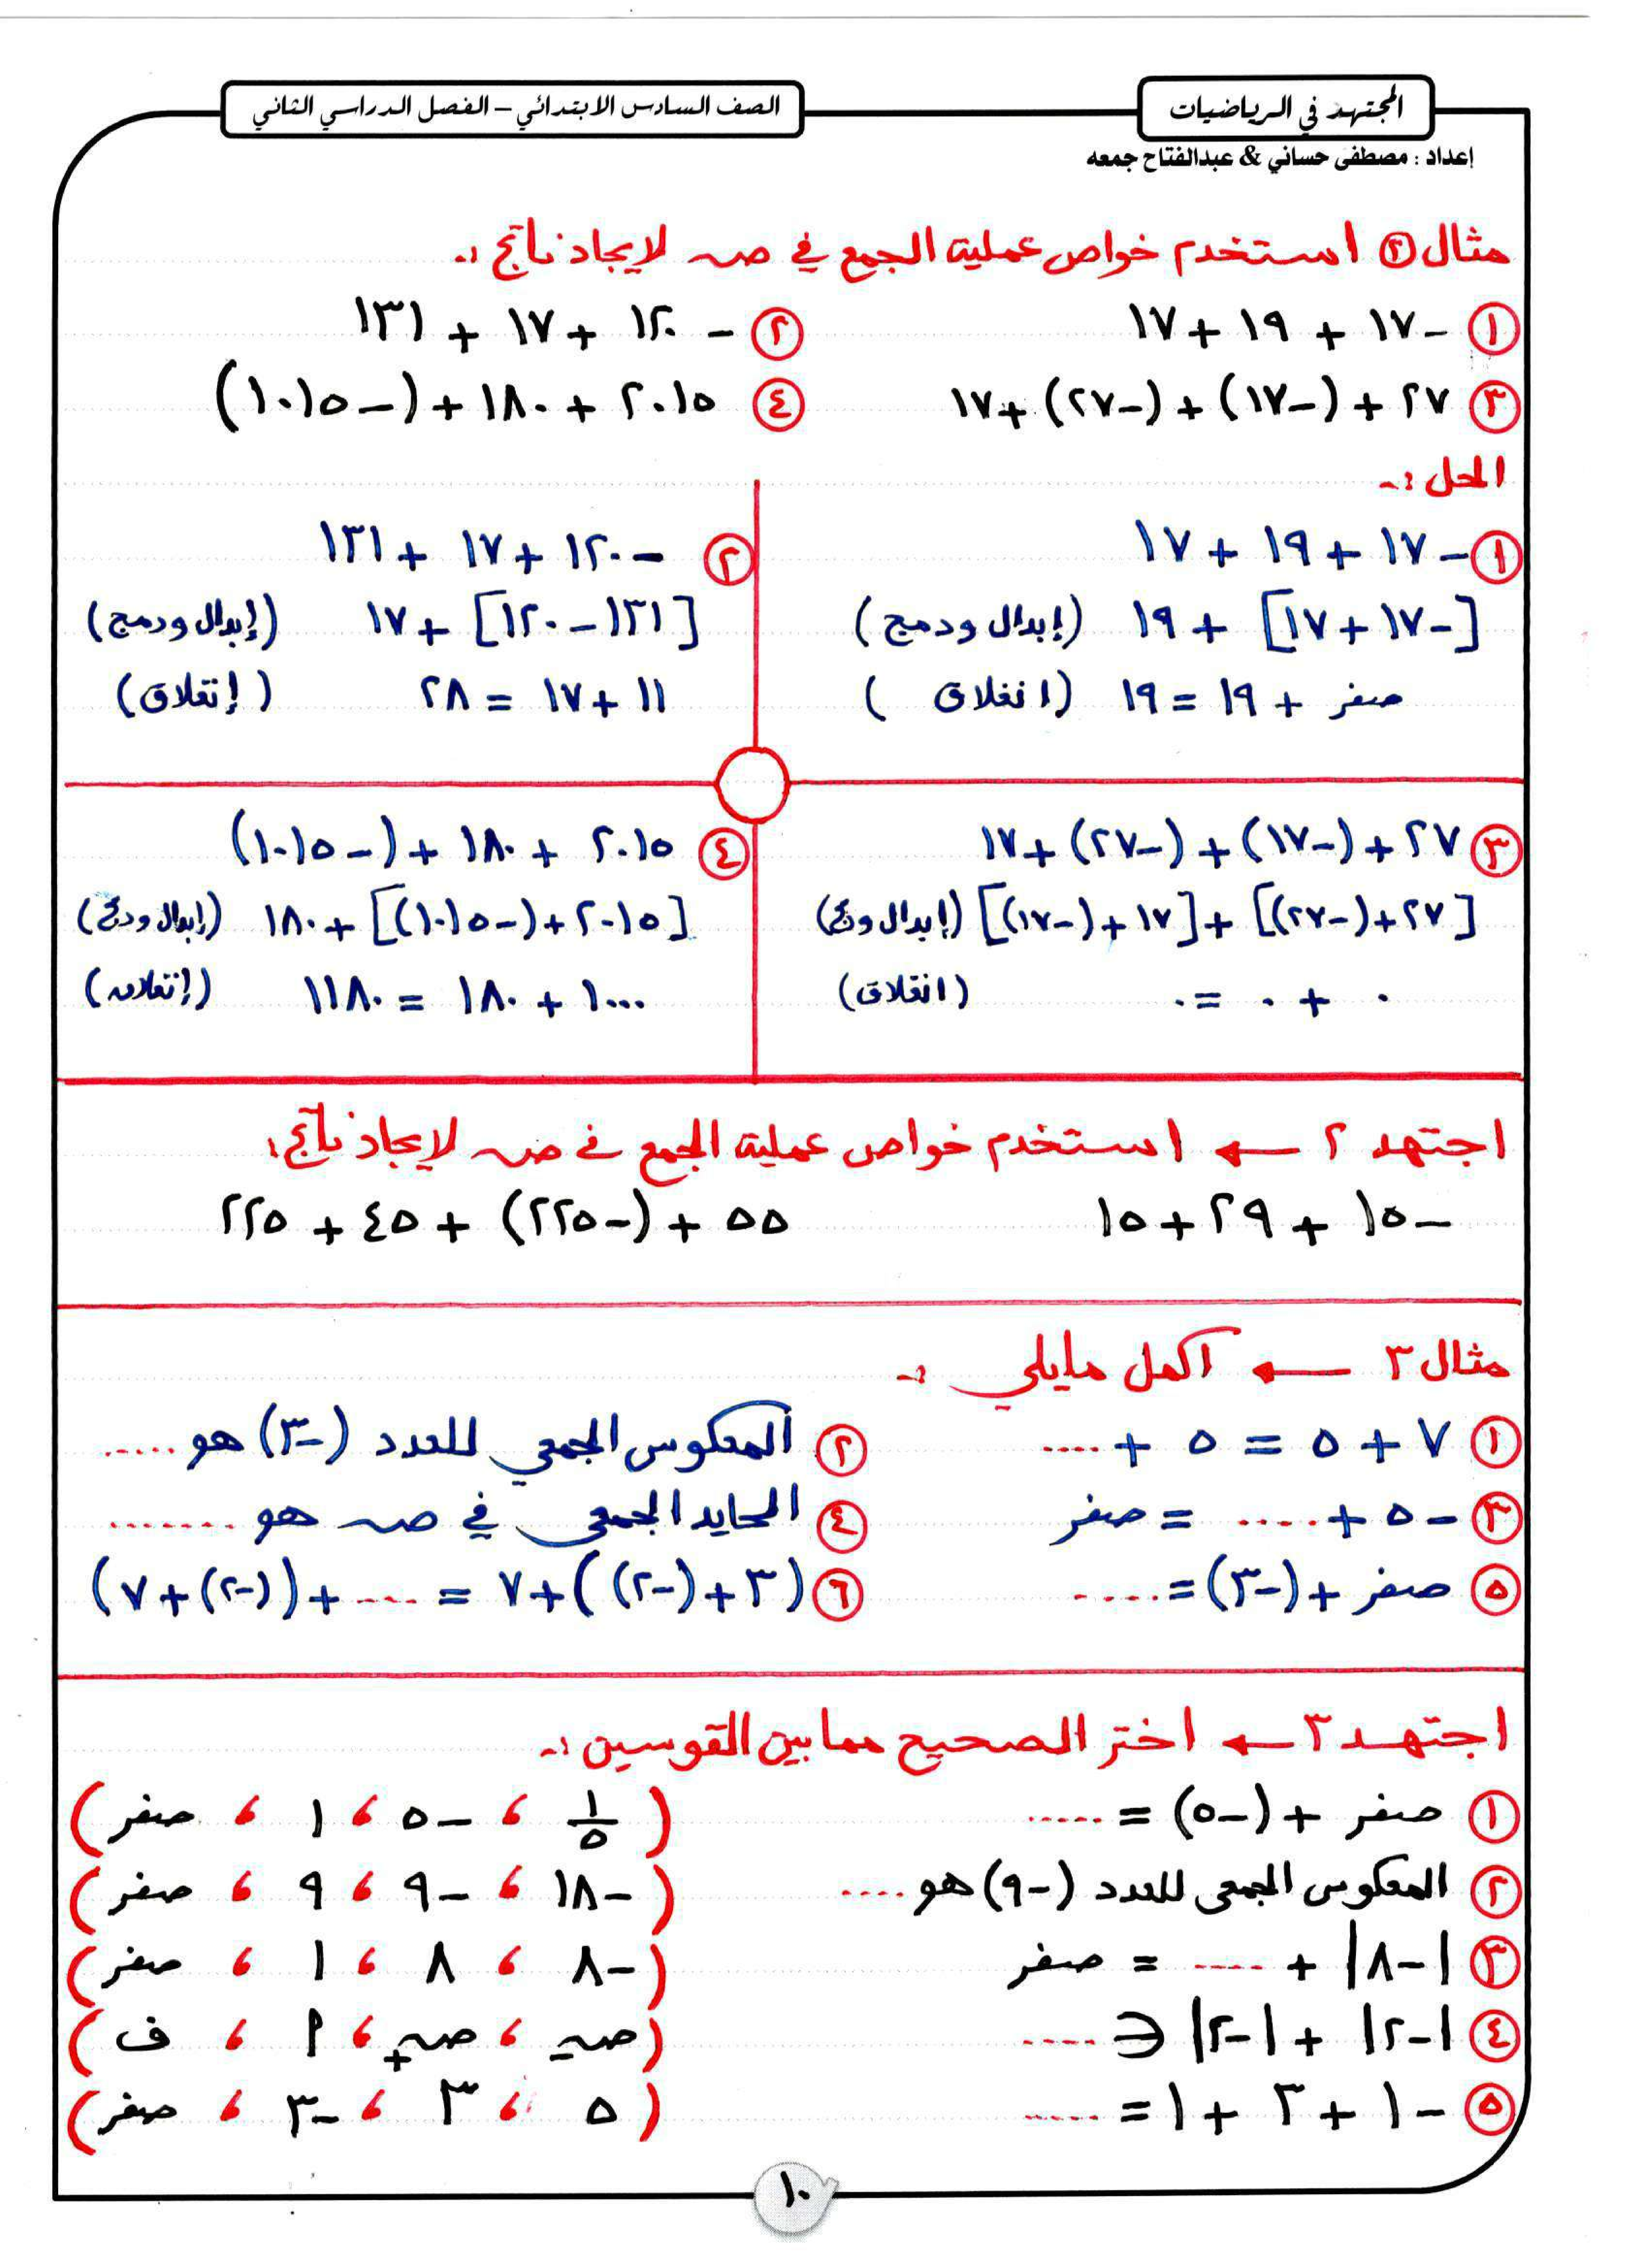 المجتهد في الرياضيات
الصف السادس الابتدائي – الفصل الدراسي الثاني
إعداد : مصطفى حساني & عبدالفتاح جمعه
مثال ٢ استخدم خواص عملية الجمع في صـ لإيجاد ناتج :ـ
١ -١٧ + ١٩ + ١٧
٢ -١٢٠ + ١٧ + ١٣١
٣ ٢٧ + (-١٧) + (-٢٧) + ١٧
٤ ٢٠١٥ + ١٨٠ + (-١٠١٥)
الحل :ـ
١ -١٧ + ١٩ + ١٧
[-١٧ + ١٧] + ١٩ (إبدال ودمج)
صفر + ١٩ = ١٩ (انغلاق)
٢ -١٢٠ + ١٧ + ١٣١
[١٣١ - ١٢٠] + ١٧ (إبدال ودمج)
١١ + ١٧ = ٢٨ (إنغلاق)
٣ ٢٧ + (-١٧) + (-٢٧) + ١٧
[٢٧ + (-٢٧)] + [١٧ + (-١٧)] (إبدال ودمج)
٠ + ٠ = ٠ (انغلاق)
٤ ٢٠١٥ + ١٨٠ + (-١٠١٥)
[٢٠١٥ + (-١٠١٥)] + ١٨٠ (إبدال ودمج)
١٠٠٠ + ١٨٠ = ١١٨٠ (إنغلاق)
اجتهد ٢ ← استخدم خواص عملية الجمع في صـ لإيجاد ناتج:
-١٥ + ٢٩ + ١٥
٥٥ + (-٢٢٥) + ٤٥ + ٢٢٥
مثال ٣ ← اكمل مايلي :ـ
١ ٧ + ٥ = ٥ + ....
٢ المعكوس الجمعي للعدد (-٣) هو .....
٣ -٥ + .... = صفر
٤ المحايد الجمعي في صـ هو .......
٥ صفر + (-٣) = ....
٦ (٣ + (-٢)) + ٧ = .... + ((-٢) + ٧)
اجتهد ٣ ← اختر الصحيح مما بين القوسين :ـ
١ صفر + (-٥) = ..... (١/٥ ، -٥ ، ١ ، صفر)
٢ المعكوس الجمعي للعدد (-٩) هو .... (-١٨ ، -٩ ، ٩ ، صفر)
٣ |-٨| + .... = صفر (-٨ ، ٨ ، ١ ، صفر)
٤ |-٢| + |-٢| ∈ .... (صـ- ، صـ+ ، م ، ف)
٥ -١ + ٣ + ١ = ..... (٥ ، ٣ ، -٣ ، صفر)
١٠